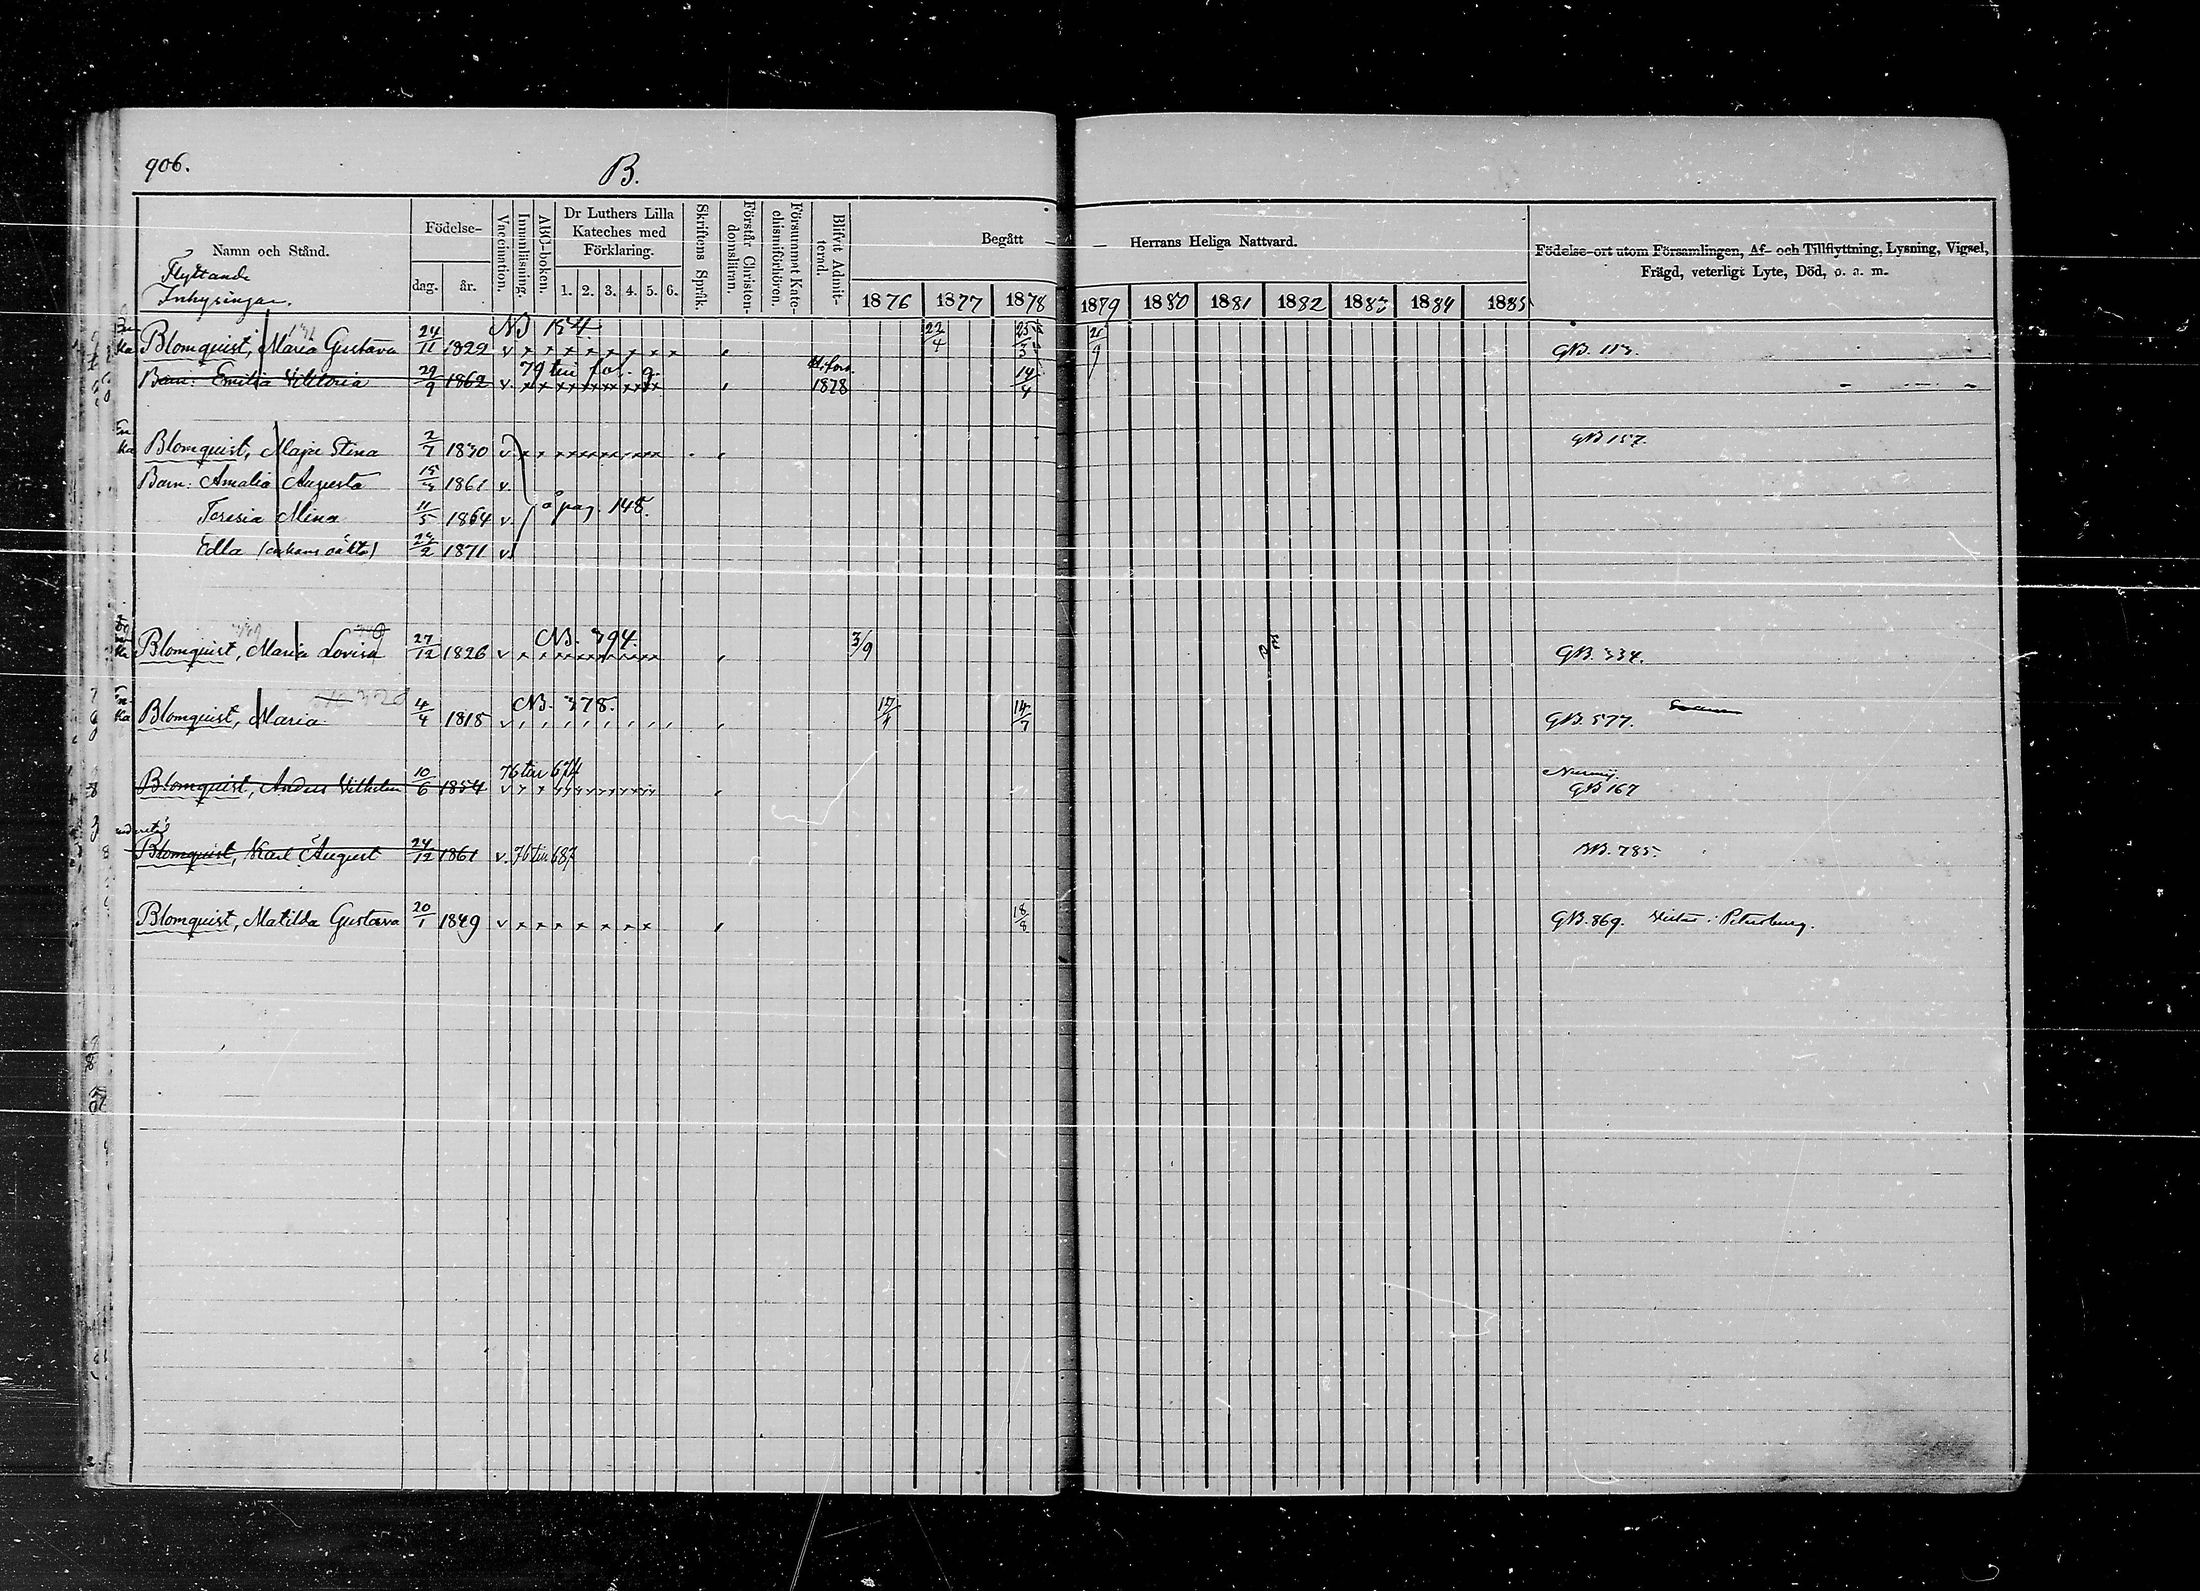 906.
B.
Namn och Stånd.
Flyttande
Inhysingar.
Födelse-
dag. år.
Vaccination.
Innanläsning.
ABC-boken.
Dr Luthers Lilla
Kateches med
Förklaring.
1. 2. 3. 4. 5. 6.
Skriftens Språk.
Förstår Christen-
domsläran.
Försummat Kate-
chismiförhören.
Blifvit Admit-
terad.
Begått — — Herrans Heliga Nattvard.
1876 1877 1878 1879 1880 1881 1882 1883 1884 1885
Födelse-ort utom Församlingen, Af- och Tillflyttning, Lysning, Vigsel,
Frägd, veterligt Lyte, Död, o. a. m.
Enka Blomquist, Maria Gustava 24/11 1822 v x x x x x x x x x 22/4 25/3 GB. 113.
Barn: Emilia Viktoria 29/9 1862 v. 79 till fol. 9. 1878 14/4
Enka Blomquist, Maja Stina 2/7 1830 v GB 157.
Barn: Amalia Augusta 15/3 1861 v.
Teresia Mina 11/5 1864 v. å pag. 148.
Edla 1871 v.
Enka Blomquist, Maria Lovisa 27/12 1826 v NB. 394. 3/9 GB. 334.
Enka Blomquist, Maria 4/4 1818 v NB. 378. 14/7 GB. 577.
Blomquist, Anders Vilhelm 10/6 1854 v 76 till 674
GB 167
Blomquist, Karl August 24/12 1861 v. 76 till 687 BB. 785.
Blomquist, Matilda Gustava 20/1 1849 v x x x x x x x 18/8 GB. 869. Petersburg.